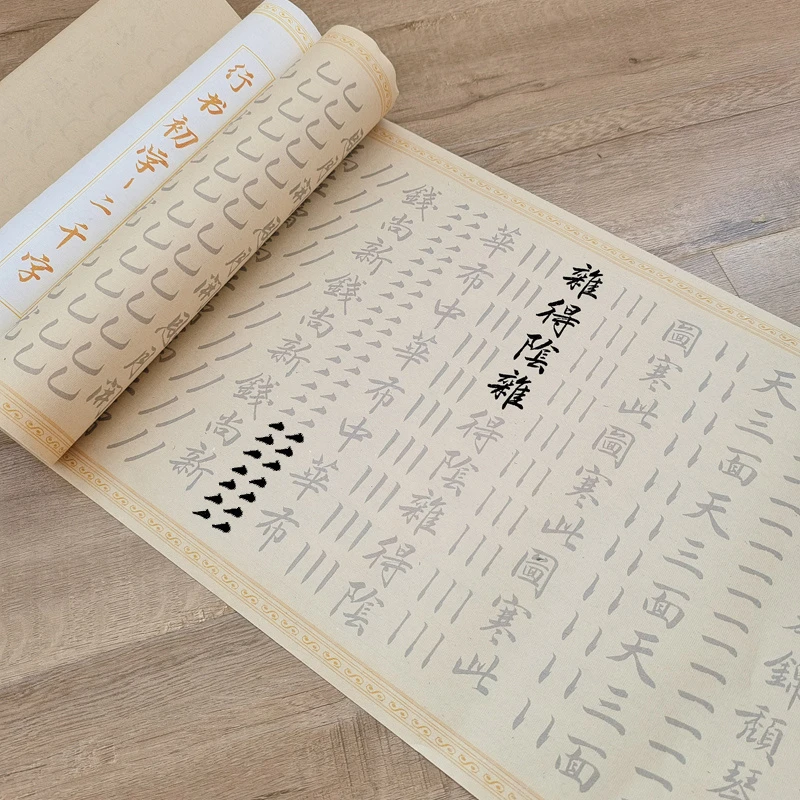 行书初学丶二千字
錦
琴
天三面天三面天三面
圖寒此圖寒此圖寒此
雜得陰雜得陰雜得陰
華布中華布中華布
錢尚新錢尚新錢尚新